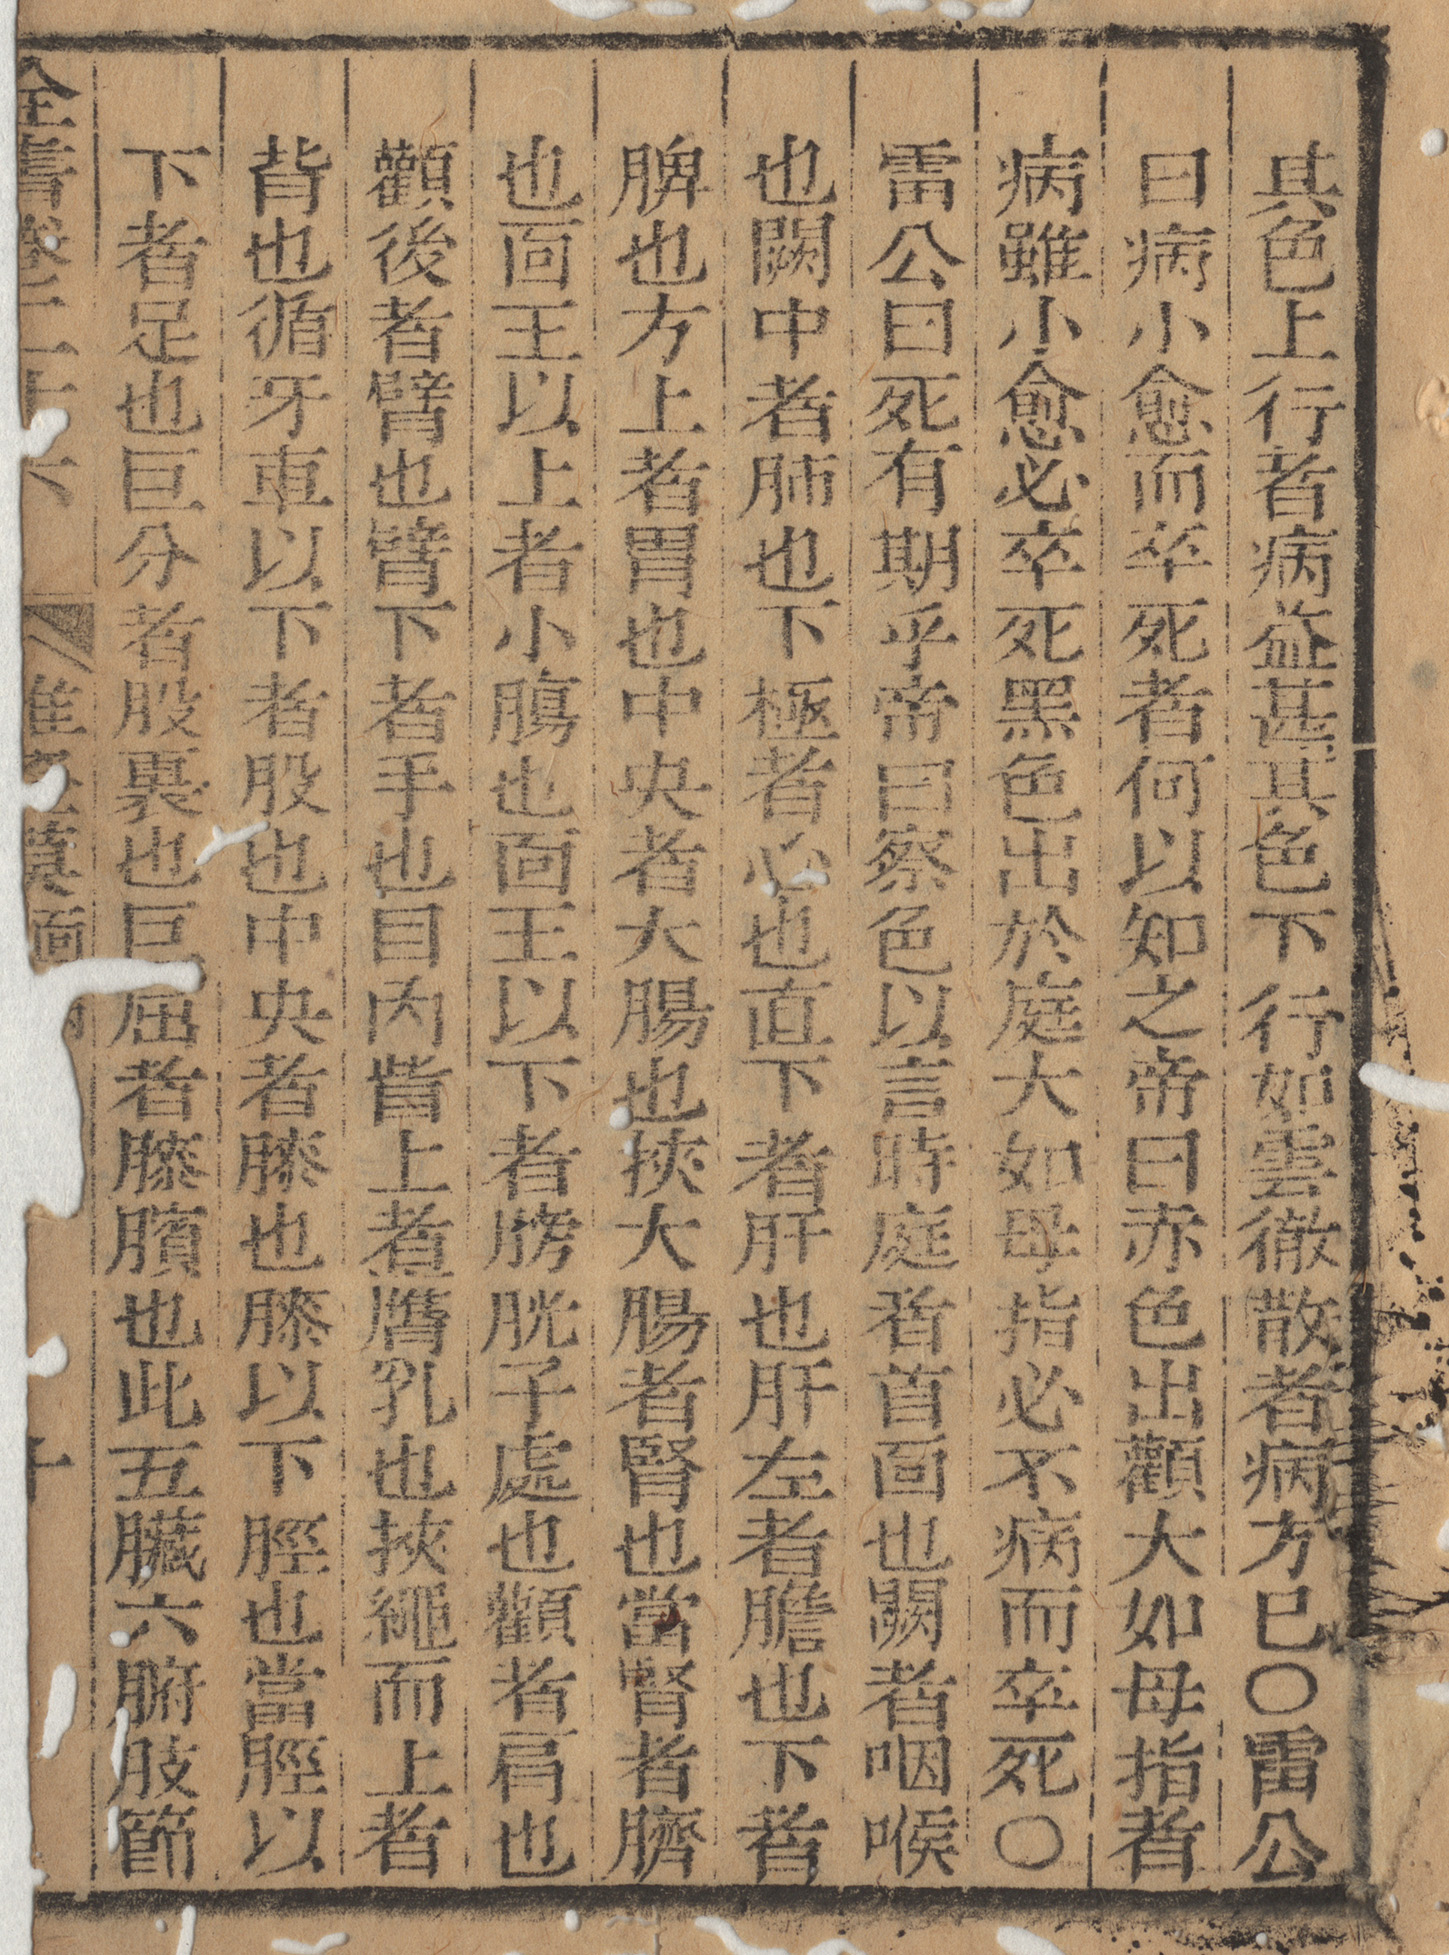 其色上行者病益甚其色下行如雲徹散者病方已〇雷公
曰病小愈而卒死者何以知之帝曰赤色出顴大如母指者
病雖小愈必卒死黑色出於庭大如母指必不病而卒死〇
雷公曰死有期乎帝曰察色以言時庭者首面也闕者咽喉
也闕中者肺也下極者心也直下者肝也肝左者膽也下者
脾也方上者胃也中央者大腸也挾大腸者腎也當腎者臍
也面王以上者小腸也面王以下者膀胱子處也顴者肩也
顴後者臂也臂下者手也目內眥上者膺乳也挾繩而上者
背也循牙車以下者股也中央者膝也膝以下脛也當脛以
下者足也巨分者股裏也巨屈者膝臏也此五臟六腑肢節
全書卷二十六 面 十